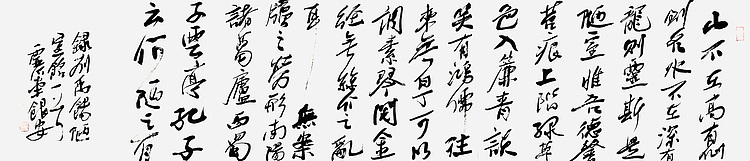 山不在高有仙
则名水不在深有
龍则靈斯是
陋室惟吾德馨
苔痕上階绿草
色入簾青談
笑有鴻儒往
來無白丁可以
調素琴閱金
經無絲竹之亂
耳無案
牘之勞形南陽
諸葛廬西蜀
子雲亭孔子
云何陋之有
錄劉禹錫陋
室銘一首